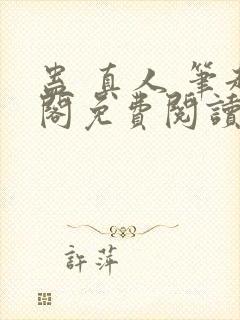 蠱真人 筆趣
閣免費閱讀
許萍